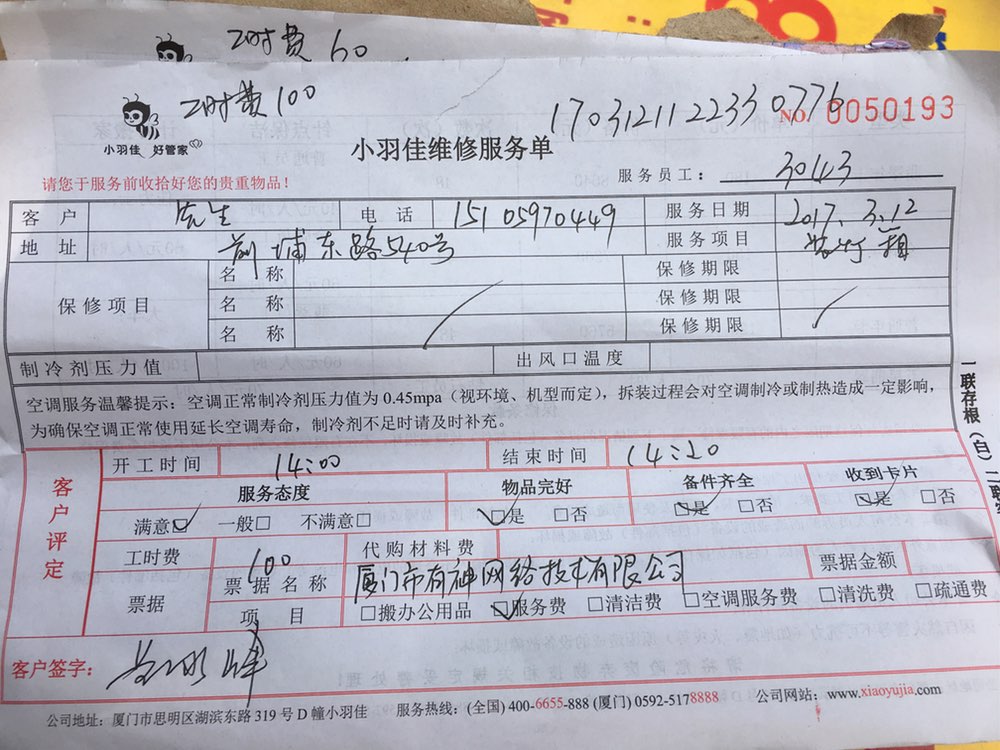 工时费 60
工时费 100
170312112233 0776
NO 0050193
小羽佳 好管家
小羽佳维修服务单
请您于服务前收拾好您的贵重物品！
服务员工： 30143
客户 先生 电话 15105970449 服务日期 2017.3.12
地址 前埔东路540号 服务项目 装灯箱
保修项目 名称 保修期限
名称 保修期限
名称 保修期限
制冷剂压力值 出风口温度
空调服务温馨提示：空调正常制冷剂压力值为 0.45mpa（视环境、机型而定），拆装过程会对空调制冷或制热造成一定影响，
为确保空调正常使用延长空调寿命，制冷剂不足时请及时补充。
一联存根（白）二联
客户评定
开工时间 14:00 结束时间 14:20
服务态度 物品完好 备件齐全 收到卡片
满意☑ 一般□ 不满意□ ☑是 □否 ☑是 □否 ☑是 □否
工时费 100 代购材料费
票据 票据名称 厦门市有神网络技术有限公司 票据金额
项目 □搬办公用品 ☑服务费 □清洁费 □空调服务费 □清洗费 □疏通费
客户签字：
公司地址：厦门市思明区湖滨东路 319 号 D 幢小羽佳 服务热线：(全国) 400-6655-888 (厦门) 0592-5178888 公司网站：www.xiaoyujia.com